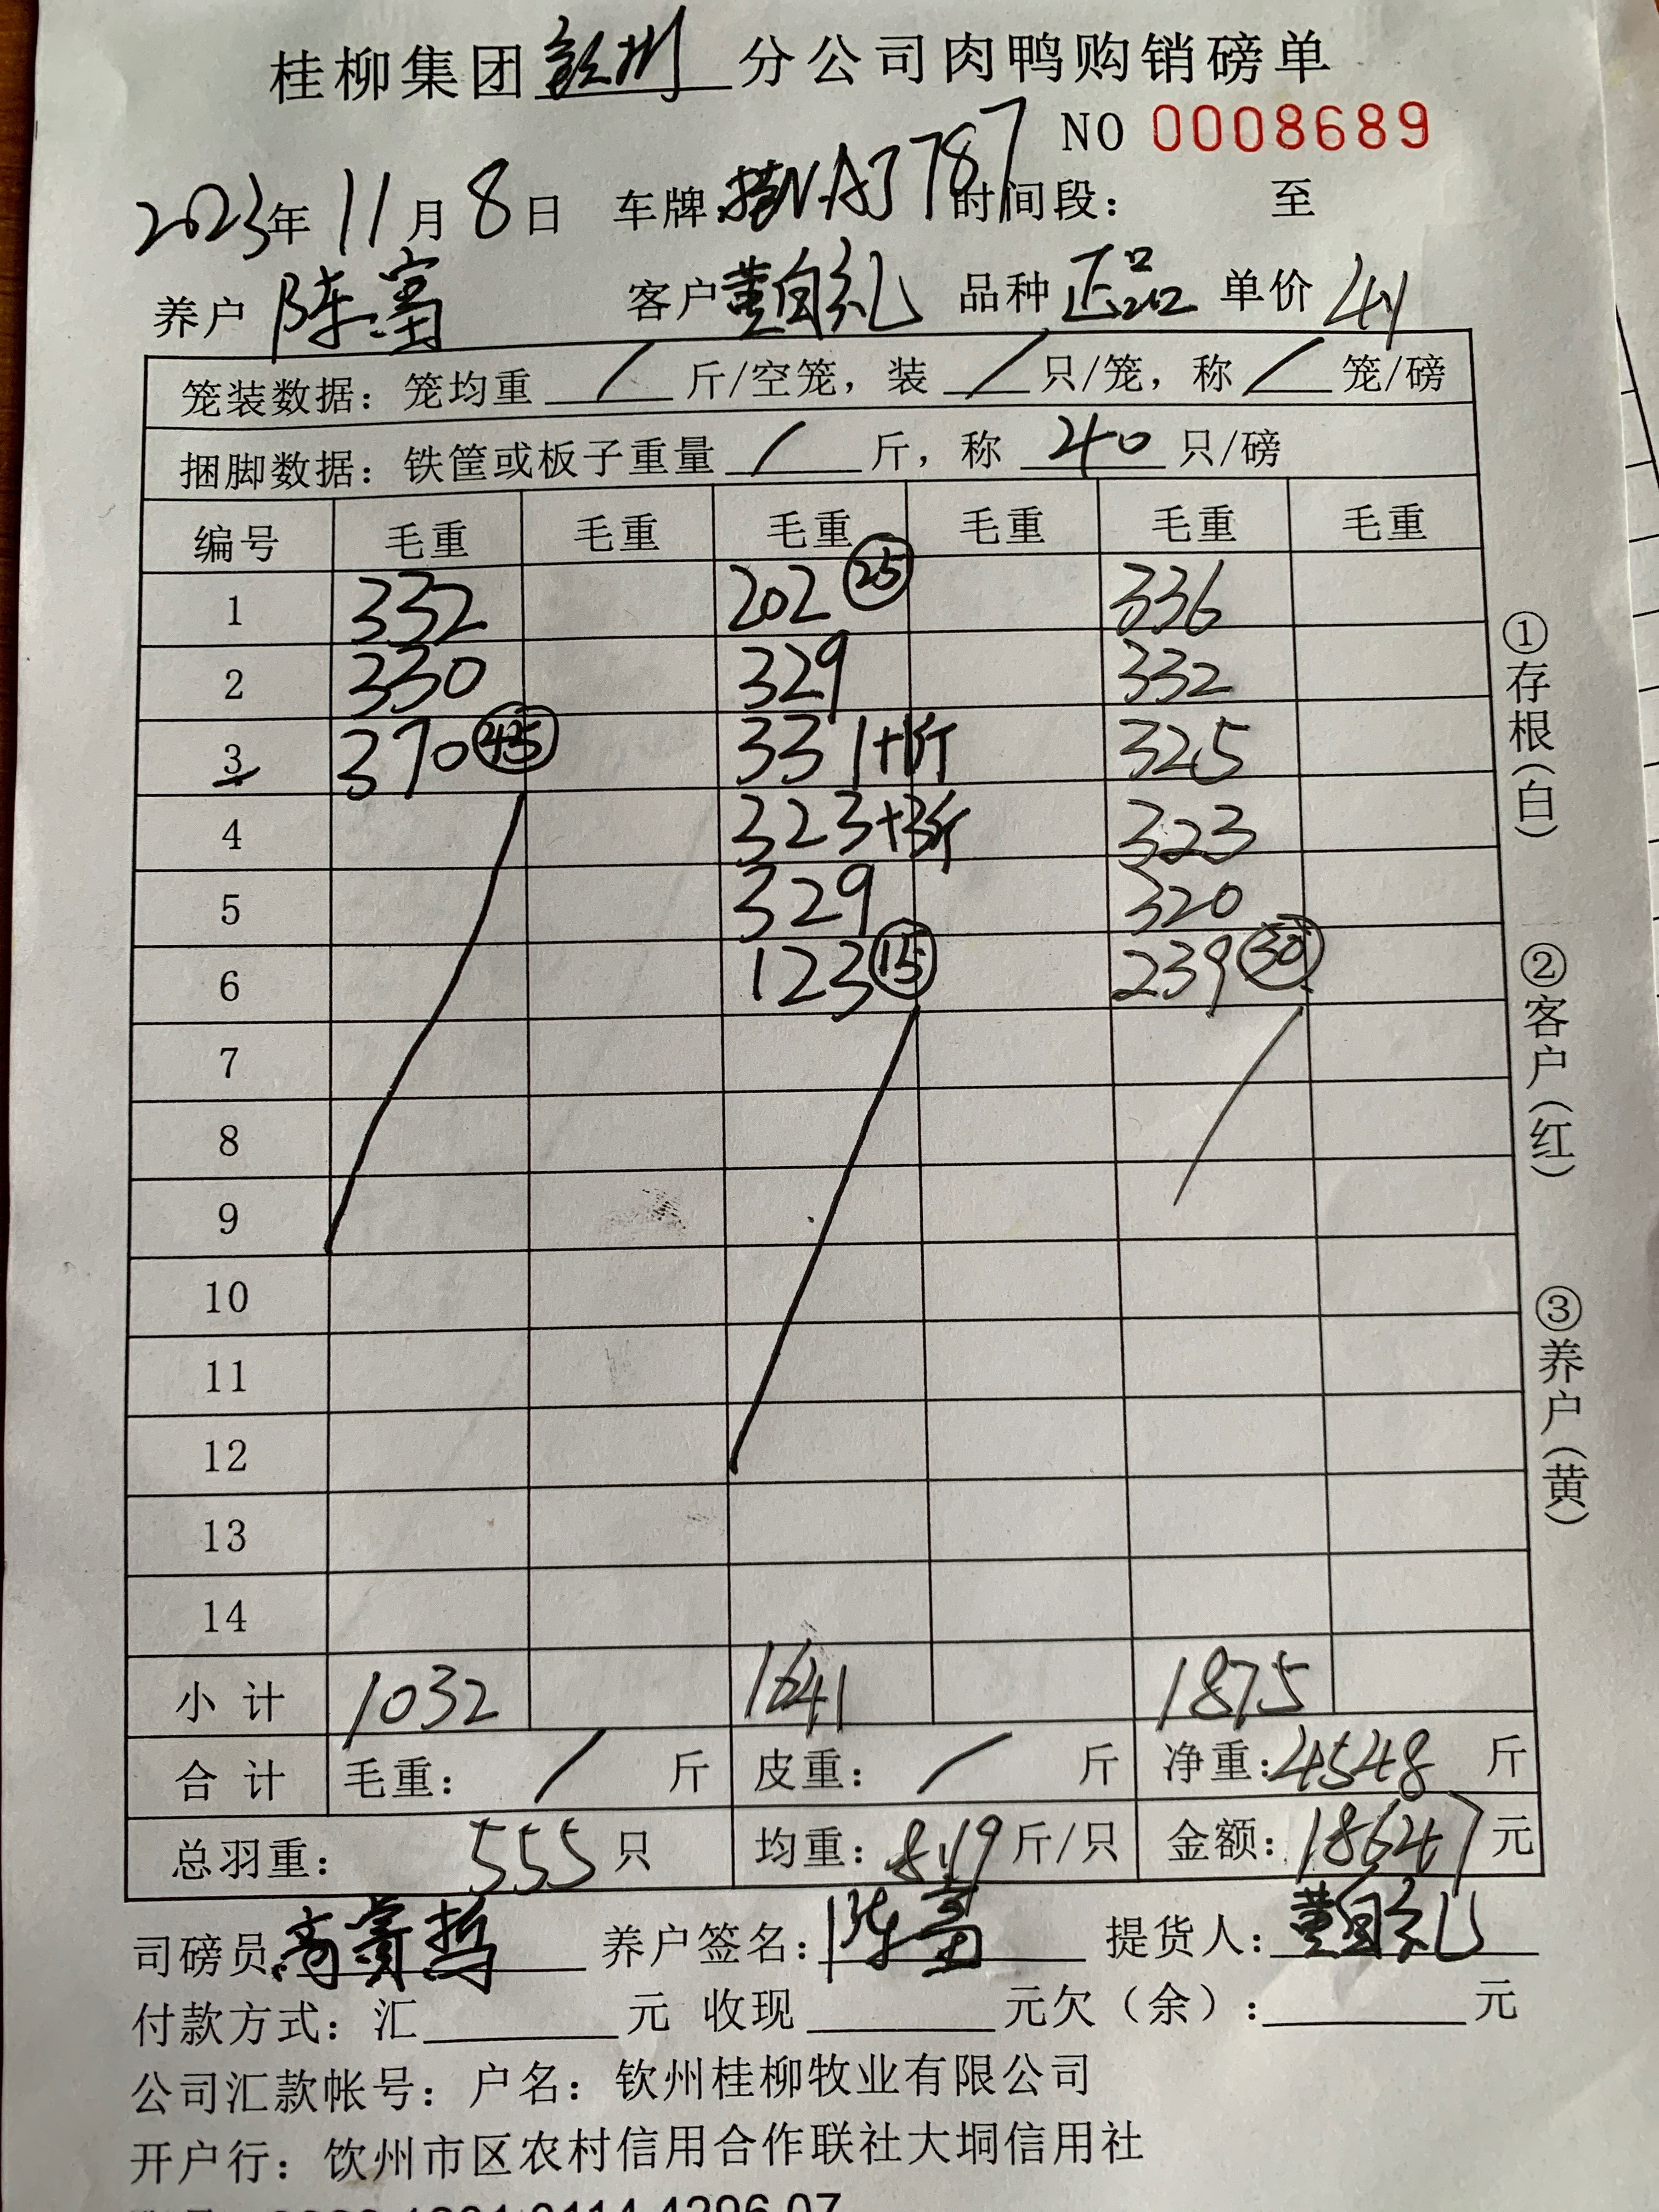 桂柳集团钦州分公司肉鸭购销磅单
NO 0008689
2023年 11月 8日 车牌 桂NA3787 时间段： 至
养户 陈富 客户 董自礼 品种 正品 单价 41
笼装数据：笼均重 / 斤/空笼，装 / 只/笼，称 / 笼/磅
捆脚数据：铁筐或板子重量 / 斤，称 40 只/磅
编号 毛重 毛重 毛重 毛重 毛重 毛重
1 332 202 25 336
2 330 329 332
3 370 45 331+1斤 325
4 323+3斤 323
5 329 320
6 123 15 239 30
7
8
9
10
11
12
13
14
小计 1032 1641 1875
合计 毛重： / 斤 皮重： / 斤 净重：4548 斤
总羽重： 555 只 均重：8.19 斤/只 金额：18647 元
司磅员 高 哲 养户签名：陈富 提货人：董自礼
付款方式：汇 元 收现 元欠（余）： 元
公司汇款帐号：户名：钦州桂柳牧业有限公司
开户行：钦州市区农村信用合作联社大垌信用社
①存根（白）
②客户（红）
③养户（黄）